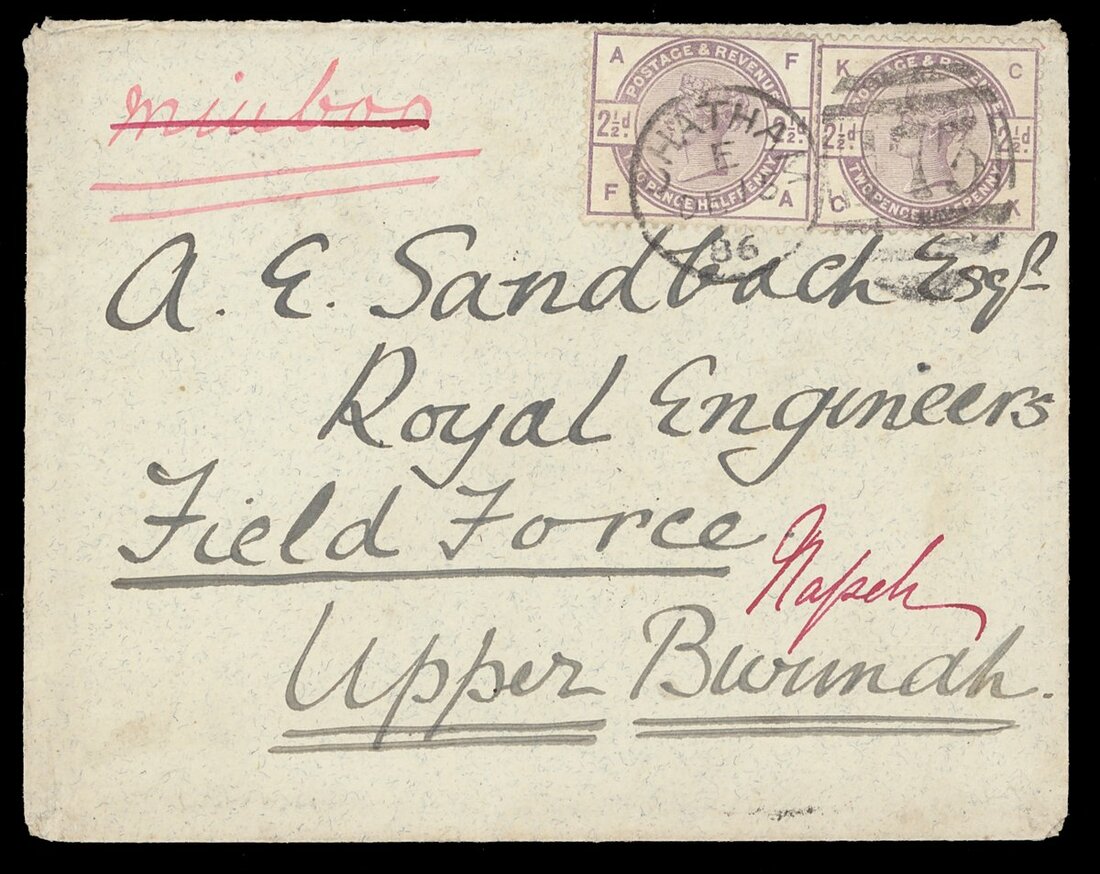 A F
POSTAGE & REVENUE
2½d. 2½d.
TWOPENCE HALFPENNY
F A
K C
POSTAGE & REVENUE
2½d. 2½d.
TWOPENCE HALFPENNY
C K
CHATHAM
E
86
minboo
A. E. Sandbach Esqr
Royal Engineers
Field Force
Napeh
Upper Burmah.